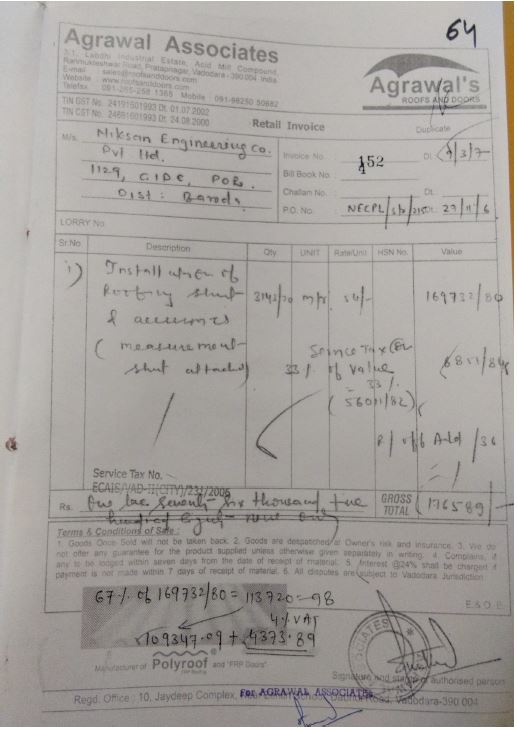 64
Agrawal Associates
3.1, Labdhi Industrial Estate, Acid Mill Compound,
Ranmukteshwar Road, Pratapnagar, Vadodara - 390 004 India
E-mail : sales@roofsanddoors.com
Website : www.roofsanddoors.com
Telefax : 091-265-258 1365 Mobile : 091-98250 50682
Agrawal's
ROOFS AND DOORS
TIN GST No. 24191501993 Dt. 01.07.2002
TIN CST No. 24691501993 Dt. 24.08.2000
Retail Invoice
Duplicate
M/s. Niksan Engineering Co.
Pvt Ltd.
1129, GIDC, POR,
Dist : Baroda
Invoice No. 152 Dt. 7/3/7
Bill Book No.
Challan No. Dt.
P.O. No. NECPL/ Dt. 27/11/6
LORRY No.
Sr.No. Description Qty. UNIT Rate/Unit HSN No. Value
1) Installation of
Roofing sheet 3143/20 54/- 169732/80
& accessories
(measurement
sheet attached)
Service Tax
33 % of value 6851/84
33 %.
(56011/82)
R/off Add /36
Service Tax No.
ECAIS/VAD-II(CITY)/231/2006
Rs. One lac Seventy Six thousand five
hundred eighty nine only
GROSS TOTAL 176589/-
Terms & Conditions of Sale :
1. Goods Once Sold will not be taken back. 2. Goods are despatched at Owner's risk and insurance. 3. We do
not offer any guarantee for the product supplied unless otherwise given separately in writing. 4. Complains, if
any to be lodged within seven days from the date of receipt of material. 5. Interest @24% shall be charged if
payment is not made within 7 days of receipt of material. 6. All disputes are subject to Vadodara Jurisdiction.
E.& O.E.
67 % of 169732/80 = 113720=98
4% VAT
109347.09 + 4373.89
Manufacturer of Polyroof and "FRP Doors"
Signature and stamp of authorised person
For AGRAWAL ASSOCIATES
Regd. Office : 10, Jaydeep Complex, Road, Vadodara-390 004